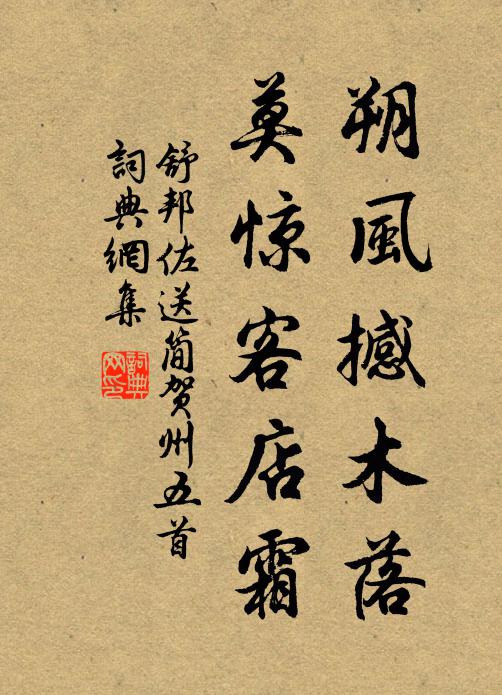 朔風撼木落
莫惊客店霜
舒邦佐送简贺州五首
詞典網集
詞典网印